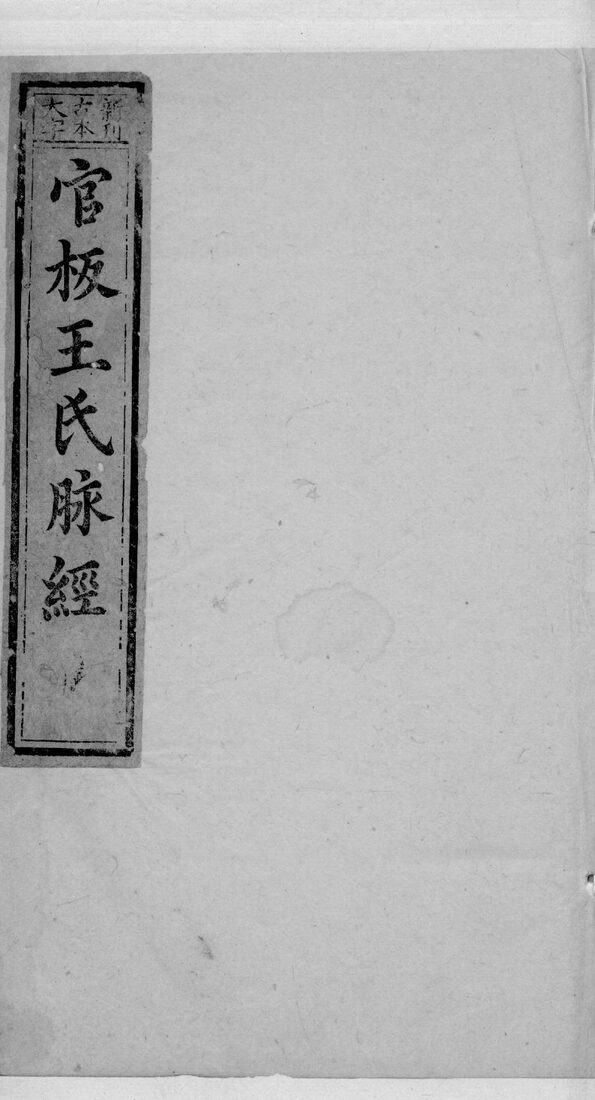 新刊
古本
大字
官板王氏脉經